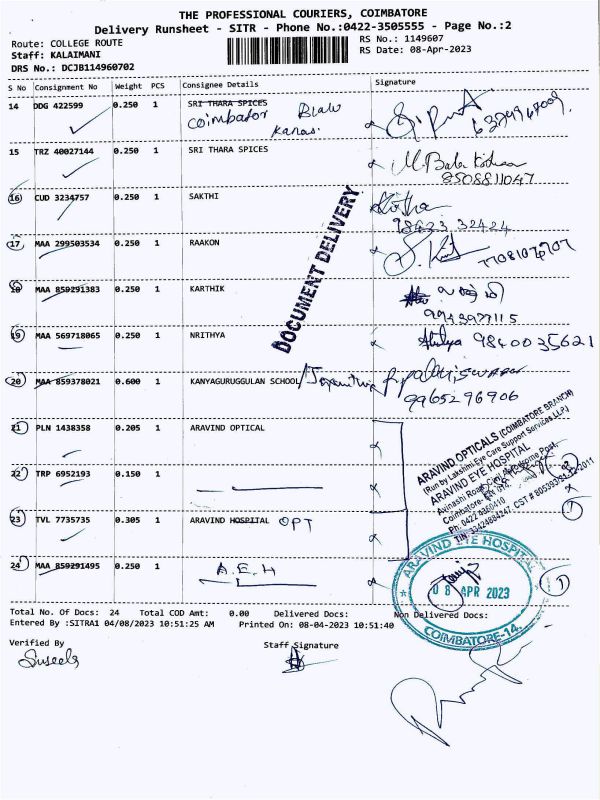 THE PROFESSIONAL COURIERS, COIMBATORE
Delivery Runsheet - SITR - Phone No.:0422-3505555 - Page No.:2
Route: COLLEGE ROUTE
Staff: KALAIMANI
DRS No.: DCJB114960702
RS No.: 1149607
RS Date: 08-Apr-2023
S No Consignment No Weight PCS Consignee Details Signature
14 DDG 422599 0.250 1 SRI THARA SPICES
coimbator
15 TRZ 40027144 0.250 1 SRI THARA SPICES
8508811047
16 CUD 3234757 0.250 1 SAKTHI
98423 32424
17 MAA 299503534 0.250 1 RAAKON
18 MAA 859291383 0.250 1 KARTHIK
19 MAA 569718065 0.250 1 NRITHYA
9840035621
20 MAA 859378021 0.600 1 KANYAGURUGGULAN SCHOOL
9965296906
21 PLN 1438358 0.205 1 ARAVIND OPTICAL
22 TRP 6952193 0.150 1
23 TVL 7735735 0.305 1 ARAVIND HOSPITAL OPT
24 MAA 859291495 0.250 1 A.E.H
DOCUMENT DELIVERY
ARAVIND OPTICALS (COIMBATORE BRANCH)
(Run by Lakshmi Eye Care Support Services LLP.)
ARAVIND EYE HOSPITAL
Avinashi Road,
Coimbatore-
ARAVIND EYE HOSPITAL
08 APR 2023
COIMBATORE-14.
Total No. Of Docs: 24 Total COD Amt: 0.00 Delivered Docs: Non Delivered Docs:
Entered By :SITRA1 04/08/2023 10:51:25 AM Printed On: 08-04-2023 10:51:40
Verified By Staff Signature
Suseela